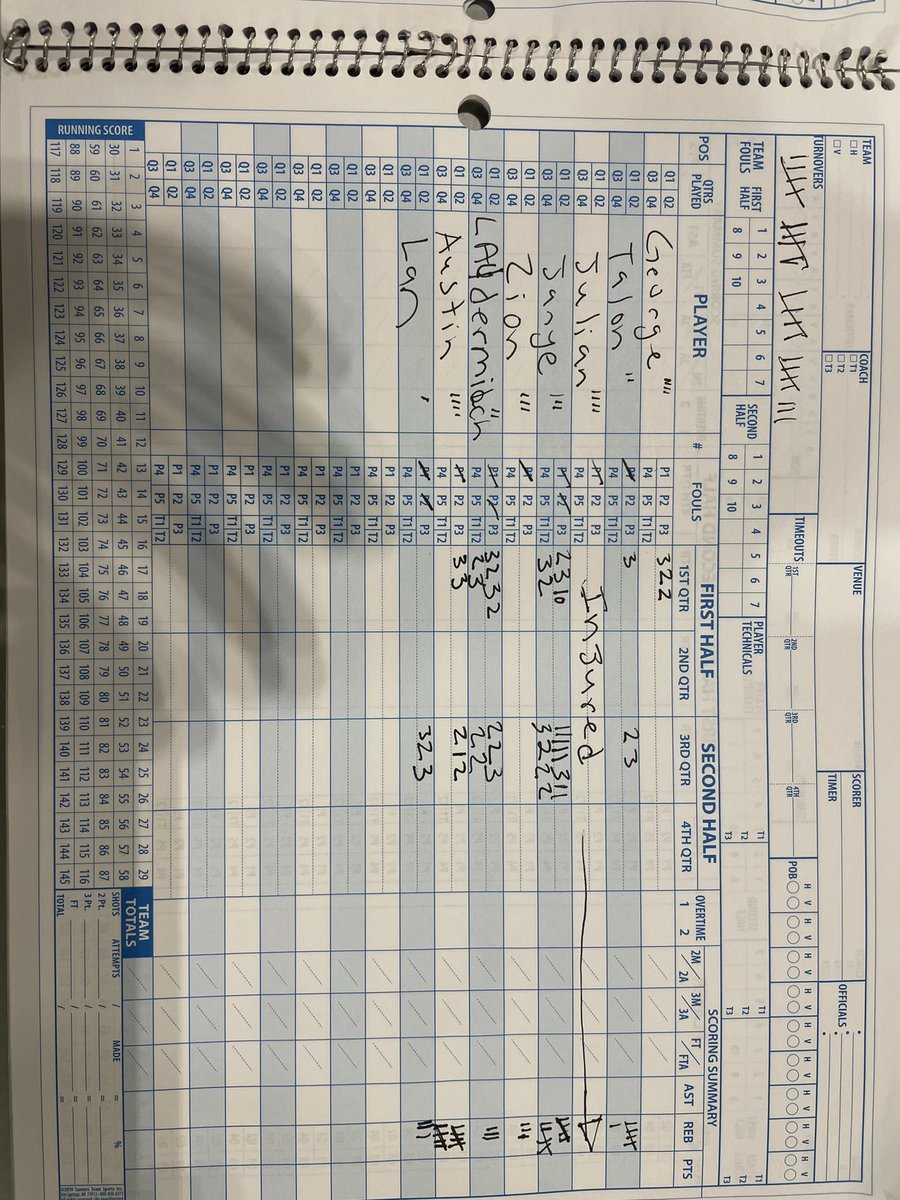 TEAM
□ H
□ V
COACH
□ T1
□ T2
□ T3
VENUE
SCORER
TIMER
OFFICIALS
TURNOVERS
TIMEOUTS 1ST QTR 2ND QTR 3RD QTR 4TH QTR
POB H V H V H V H V H V H V H V H V H V
TEAM FOULS FIRST HALF 1 2 3 4 5 6 7
8 9 10
SECOND HALF 1 2 3 4 5 6 7
8 9 10
PLAYER TECHNICALS
T1 T1 T1
T2 T2 T2
T3 T3 T3
FIRST HALF SECOND HALF OVERTIME SCORING SUMMARY
POS QTRS PLAYED PLAYER # FOULS 1ST QTR 2ND QTR 3RD QTR 4TH QTR 1 2 2M/2A 3M/3A FT/FTA AST REB PTS
Q1 Q2 George P1 P2 P3 322
Q3 Q4 P4 P5 T1 T2
Q1 Q2 Talon P1 P2 P3 3 23
Q3 Q4 P4 P5 T1 T2
Q1 Q2 Julian P1 P2 P3 In3ured
Q3 Q4 P4 P5 T1 T2
Q1 Q2 P2 P3 2310
Q3 Q4 P4 P5 T1 T2 32 3222
Q1 Q2 Zion P2 P3
Q3 Q4 P4 P5 T1 T2
Q1 Q2 P3 3232 223
Q3 Q4 P4 P5 T1 T2 23 22
Q1 Q2 Austin P2 P3 3 212
Q3 Q4 P4 P5 T1 T2 3
Q1 Q2 Lan P3 323
Q3 Q4 P4 P5 T1 T2
Q1 Q2 P1 P2 P3
Q3 Q4 P4 P5 T1 T2
Q1 Q2 P1 P2 P3
Q3 Q4 P4 P5 T1 T2
Q1 Q2 P1 P2 P3
Q3 Q4 P4 P5 T1 T2
Q1 Q2 P1 P2 P3
Q3 Q4 P4 P5 T1 T2
Q1 Q2 P1 P2 P3
Q3 Q4 P4 P5 T1 T2
Q1 Q2 P1 P2 P3
Q3 Q4 P4 P5 T1 T2
Q1 Q2 P1 P2 P3
Q3 Q4 P4 P5 T1 T2
RUNNING SCORE
1 2 3 4 5 6 7 8 9 10 11 12 13 14 15 16 17 18 19 20 21 22 23 24 25 26 27 28 29
30 31 32 33 34 35 36 37 38 39 40 41 42 43 44 45 46 47 48 49 50 51 52 53 54 55 56 57 58
59 60 61 62 63 64 65 66 67 68 69 70 71 72 73 74 75 76 77 78 79 80 81 82 83 84 85 86 87
88 89 90 91 92 93 94 95 96 97 98 99 100 101 102 103 104 105 106 107 108 109 110 111 112 113 114 115 116
117 118 119 120 121 122 123 124 125 126 127 128 129 130 131 132 133 134 135 136 137 138 139 140 141 142 143 144 145
TEAM TOTALS
SHOTS ATTEMPTS / MADE = %
2 Pt. / =
3 Pt. / =
FT / =
TOTAL / =